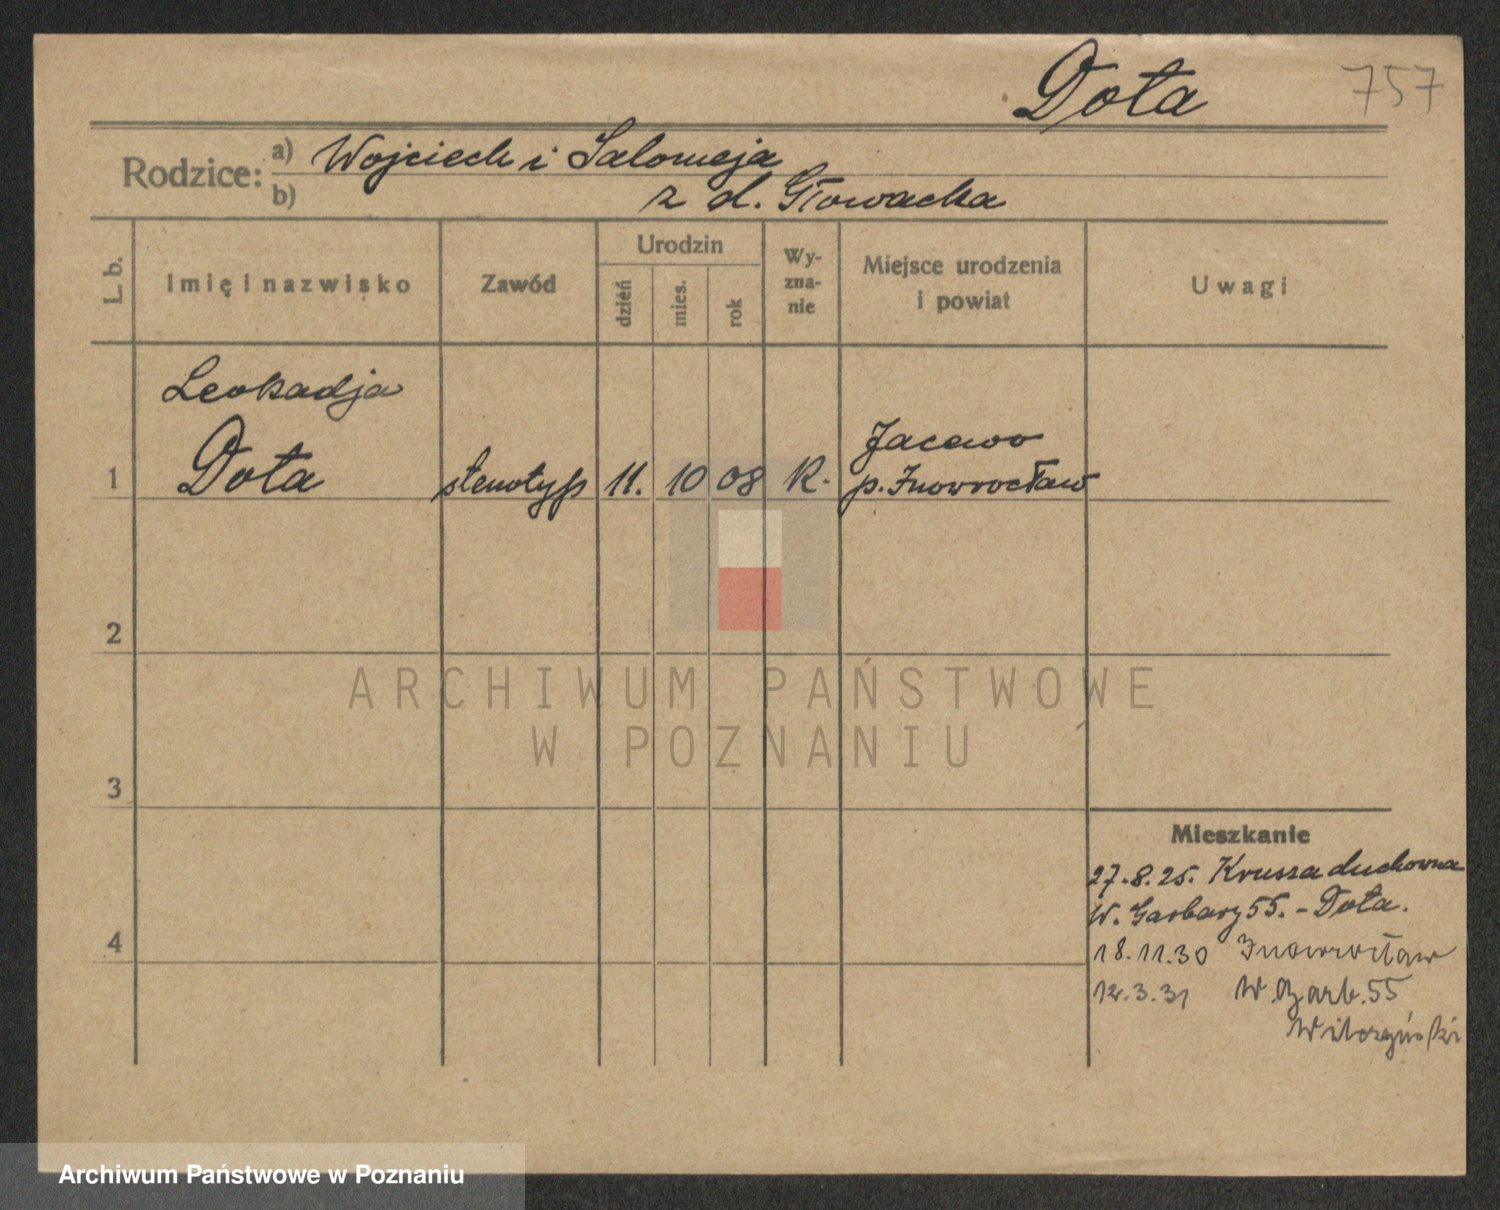 Dota 757
Rodzice: a) Wojciech i Salomeja
b) z d. Głowacka
L. b. Imię i nazwisko Zawód Urodzin dzień mies. rok Wy-zna-nie Miejsce urodzenia i powiat Uwagi
Leokadja
1 Dota stenotyp 11. 10 08 R. Jacewo
p. Inowrocław
2
ARCHIWUM PAŃSTWOWE
W POZNANIU
3
Mieszkanie
27.8.25. Krusza duchowna
W. Garbary 55. - Dota.
4
18.11.30 Inowrocław
12.3.31 W. Garb. 55
Wilczyński
Archiwum Państwowe w Poznaniu